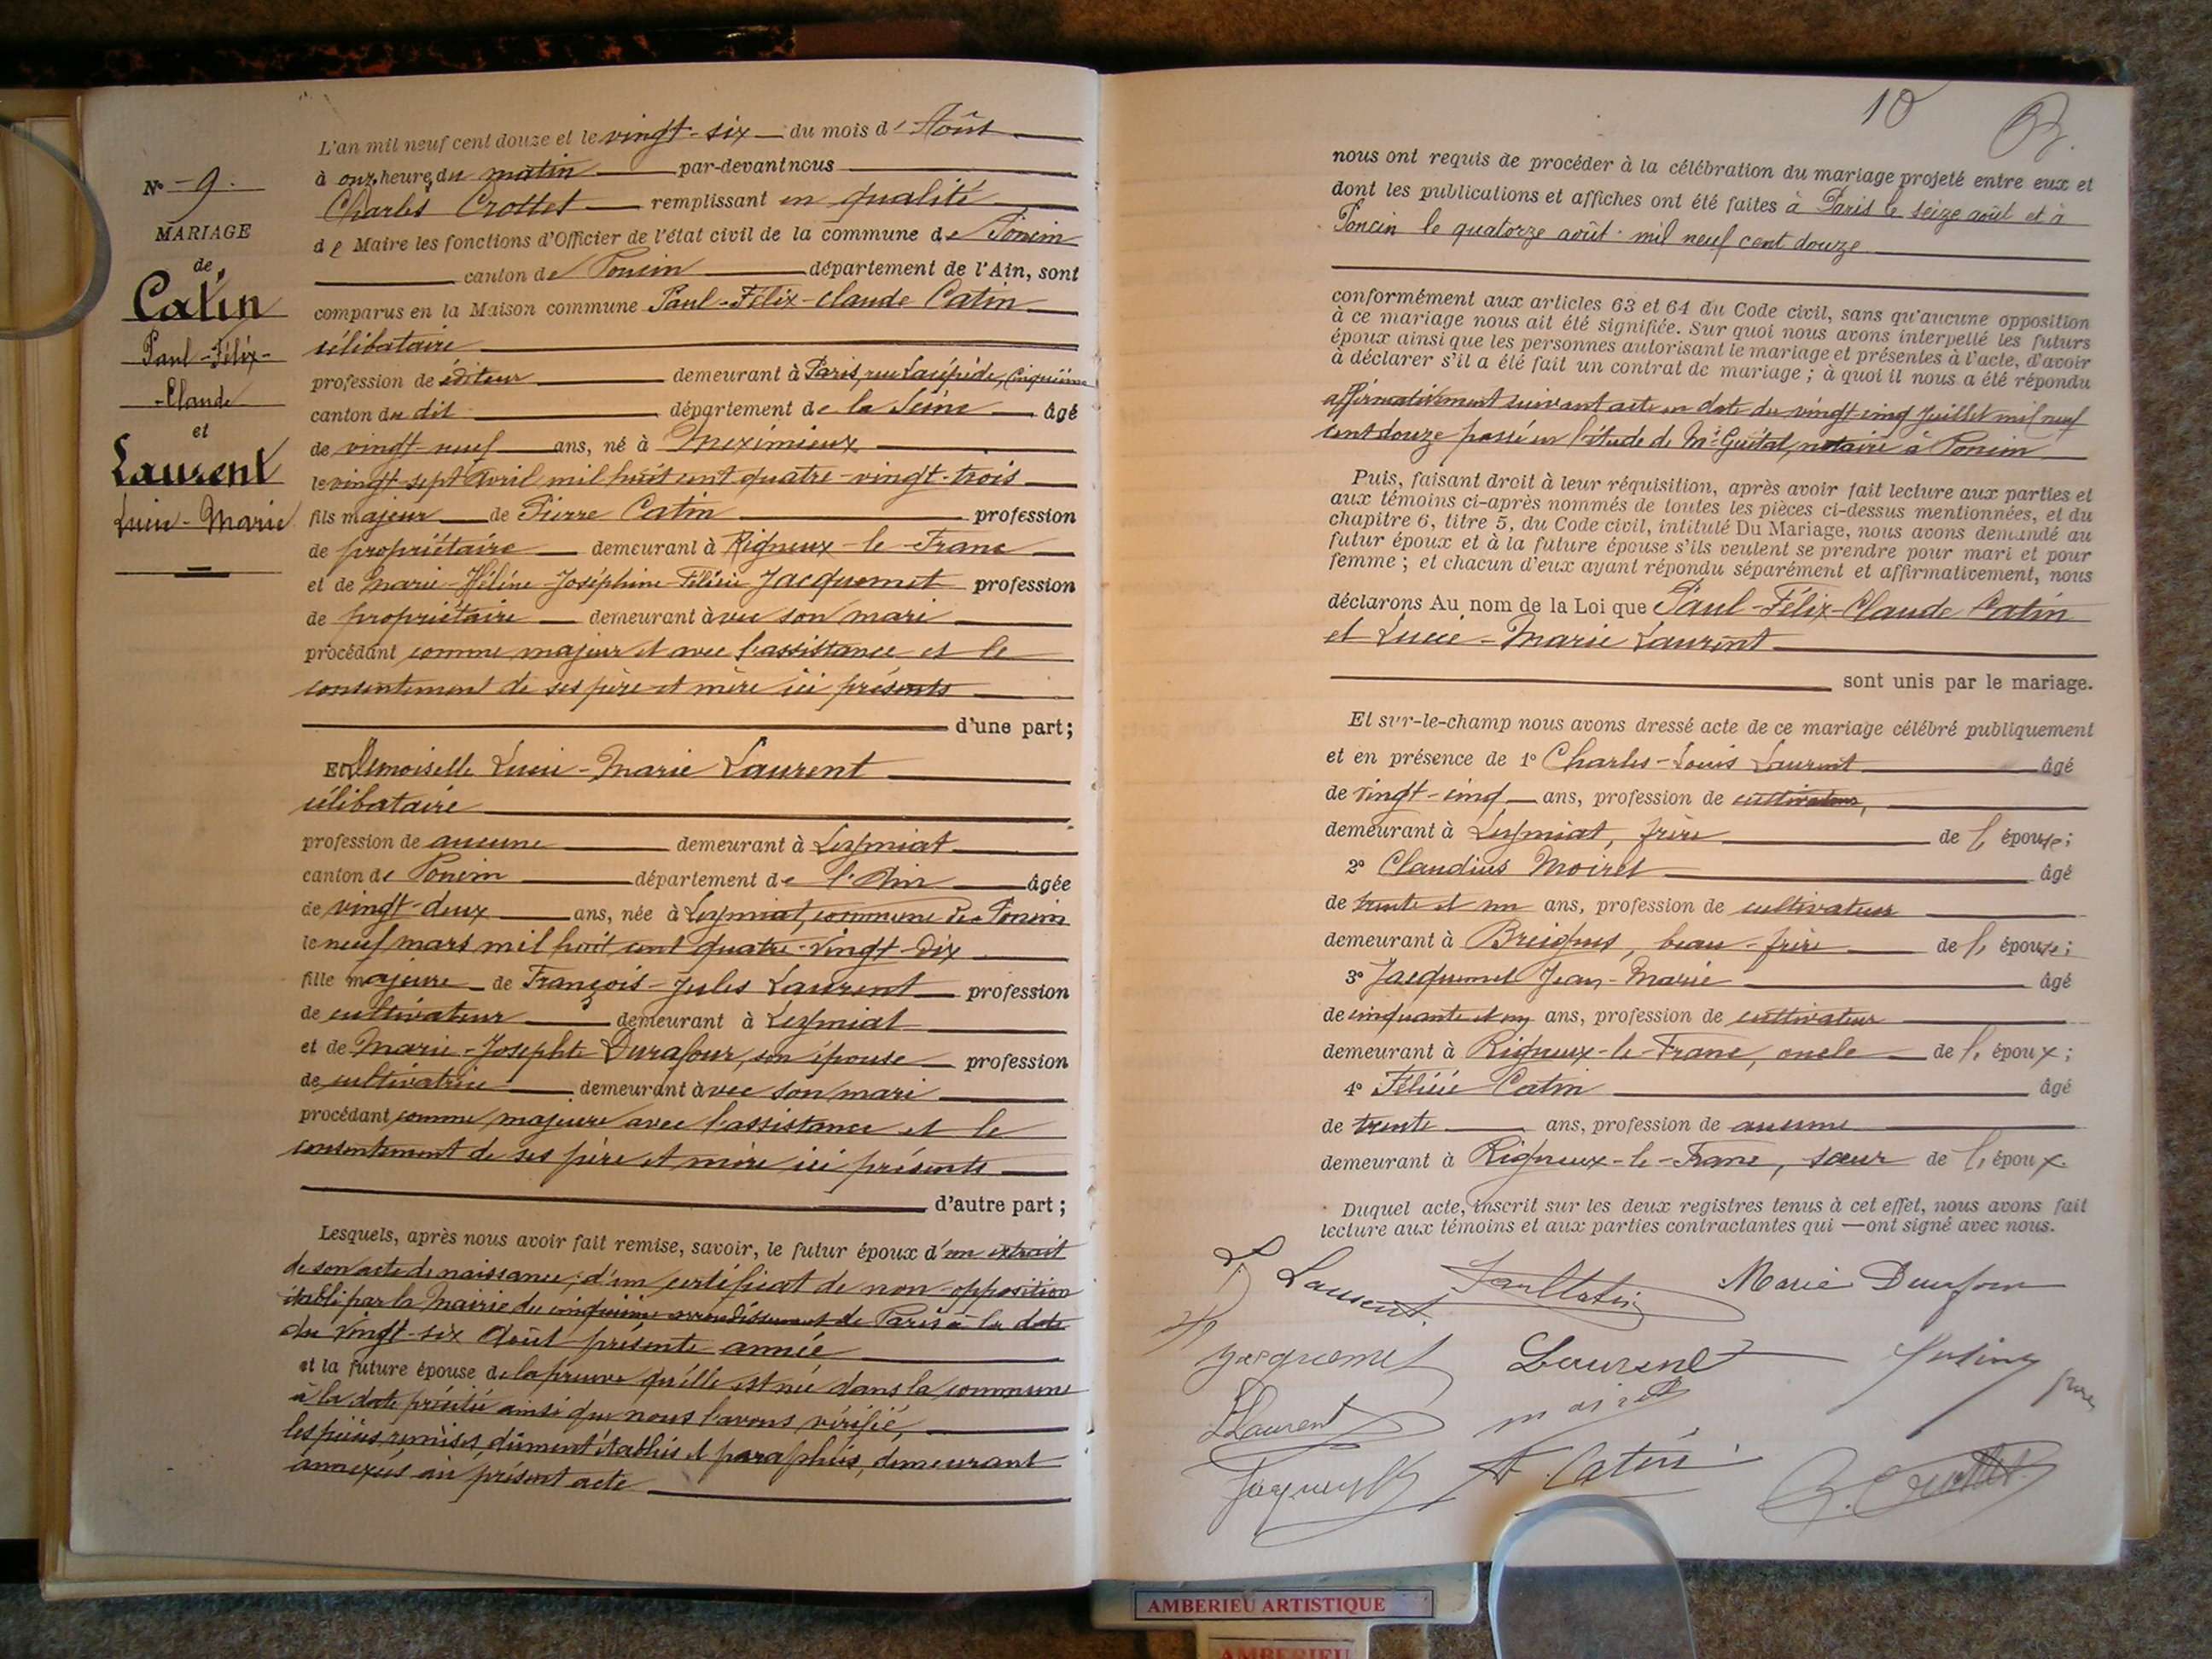 N° 9.
MARIAGE
de
Catin
Paul-Félix-
-Claude
et
Laurent
Lucie-Marie
L'an mil neuf cent douze et le vingt-six du mois d'Août
à onze heures du matin par-devant nous
Charles Crottet remplissant en qualité
de Maire les fonctions d'Officier de l'état civil de la commune de Poncin
canton de Poncin département de l'Ain, sont
comparus en la Maison commune Paul-Félix-Claude Catin
célibataire
profession de éditeur demeurant à Paris, rue Lacépède, Cinquième
canton du dit département de la Seine âgé
de vingt-neuf ans, né à Meximieux
le vingt-sept Avril mil huit cent quatre-vingt-trois
fils majeur de Pierre Catin profession
de propriétaire demeurant à Rigneux-le-Franc
et de Marie-Hélène-Joséphine-Félicie Jacquemet profession
de propriétaire demeurant avec son mari
procédant comme majeur et avec l'assistance et le
consentement de ses père et mère ici présents
d'une part;
Et Demoiselle Lucie-Marie Laurent
célibataire
profession de aucune demeurant à Leymiat
canton de Poncin département de l'Ain âgée
de vingt-deux ans, née à Leymiat, commune de Poncin
le neuf mars mil huit cent quatre-vingt-dix
fille majeure de François-Jules Laurent profession
de cultivateur demeurant à Leymiat
et de Marie-Josephte Durafour, son épouse profession
de cultivatrice demeurant avec son mari
procédant comme majeure avec l'assistance et le
consentement de ses père et mère ici présents
d'autre part;
Lesquels, après nous avoir fait remise, savoir, le futur époux d'un extrait
de son acte de naissance; d'un certificat de non-opposition
établi par la Mairie du cinquième arrondissement de Paris à la date
du vingt-six Août présente année
et la future épouse de la preuve qu'elle est née dans la commune
à la date précitée ainsi que nous l'avons vérifié,
les pièces remises, dûment établies et paraphées, demeurant
annexées au présent acte
10
nous ont requis de procéder à la célébration du mariage projeté entre eux et
dont les publications et affiches ont été faites à Paris le seize août et à
Poncin le quatorze août mil neuf cent douze
conformément aux articles 63 et 64 du Code civil, sans qu'aucune opposition
à ce mariage nous ait été signifiée. Sur quoi nous avons interpellé les futurs
époux ainsi que les personnes autorisant le mariage et présentes à l'acte, d'avoir
à déclarer s'il a été fait un contrat de mariage; à quoi il nous a été répondu
affirmativement suivant acte en date du vingt-cinq Juillet mil neuf
cent douze passé en l'étude de Me Guétat, notaire à Poncin
Puis, faisant droit à leur réquisition, après avoir fait lecture aux parties et
aux témoins ci-après nommés de toutes les pièces ci-dessus mentionnées, et du
chapitre 6, titre 5, du Code civil, intitulé Du Mariage, nous avons demandé au
futur époux et à la future épouse s'ils veulent se prendre pour mari et pour
femme; et chacun d'eux ayant répondu séparément et affirmativement, nous
déclarons Au nom de la Loi que Paul-Félix-Claude Catin
et Lucie-Marie Laurent
sont unis par le mariage.
Et sur-le-champ nous avons dressé acte de ce mariage célébré publiquement
et en présence de 1° Charles-Louis Laurent âgé
de vingt-cinq ans, profession de cultivateur,
demeurant à Leymiat, frère de l'épouse;
2° Claudius Moiret âgé
de trente et un ans, profession de cultivateur
demeurant à Breignes, beau-frère de l'épouse;
3° Jacquemet Jean-Marie âgé
de cinquante et un ans, profession de cultivateur
demeurant à Rigneux-le-Franc, oncle de l'époux;
4° Félicie Catin âgé
de trente ans, profession de aucune
demeurant à Rigneux-le-Franc, sœur de l'époux.
Duquel acte, inscrit sur les deux registres tenus à cet effet, nous avons fait
lecture aux témoins et aux parties contractantes qui ont signé avec nous.
L Laurent Paul Catin Marie Durafour
Jacquemet Laurent
Laurent Moiret
F. Catin C. Crottet
AMBERIEU ARTISTIQUE
AMBERIEU